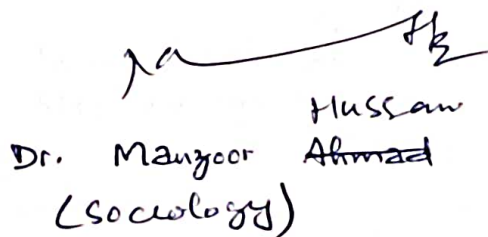 Hussain
Dr. Manzoor Ahmad
(Sociology)